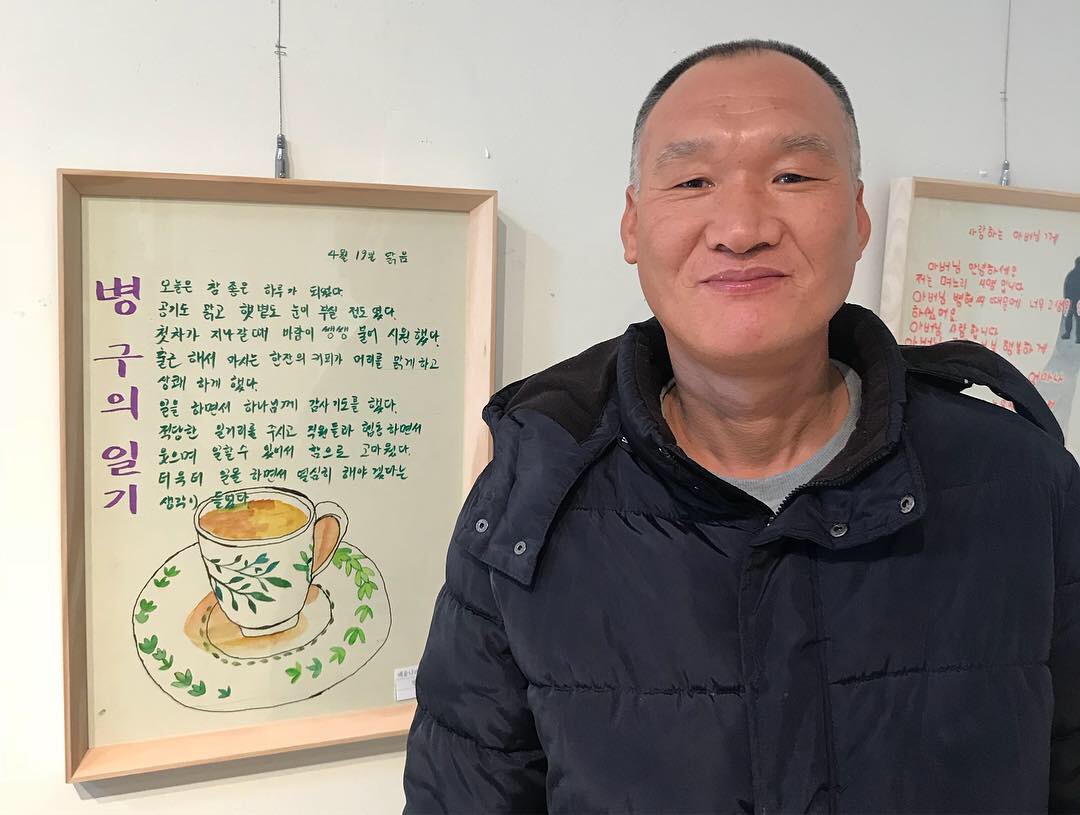 4월 19일 맑음
병구의 일기
오늘은 참 좋은 하루가 되었다.
공기도 맑고 햇볕도 눈이 부실 정도 였다.
첫차가 지나갈때 바람이 쌩쌩 불어 시원했다.
출근 해서 마시는 한잔의 커피가 머리를 맑게 하고
상쾌 하게 했다.
일을 하면서 하나님께 감사기도를 했다.
적당한 일거리를 주시고 직원들과 협동하면서
웃으며 일할수 있어서 참으로 고마웠다.
더욱더 일을 하면서 열심히 해야 겠다는
생각이 들었다.
사랑하는 아버님께
아버님 안녕하세요
저는 며느리
아버님 병현씨 때문에 너무 고생
하셨어요
아버님 사랑합니다
행복하게